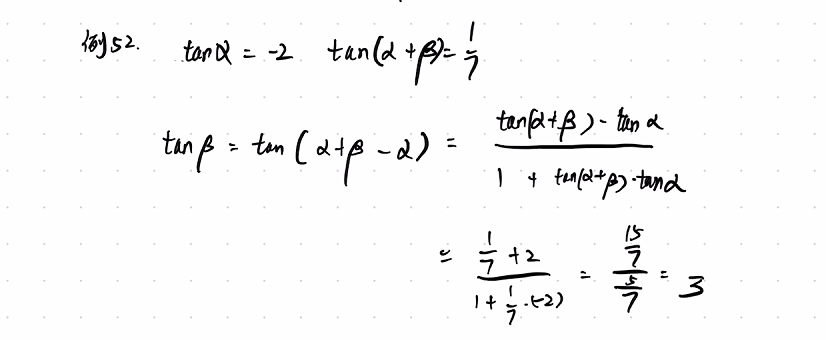 例52. tanα = -2 tan(α+β)= 1/7
tanβ = tan(α+β-α) = (tan(α+β)-tanα)/(1+tan(α+β)·tanα)
= (1/7+2)/(1+1/7·(-2)) = (15/7)/(5/7) = 3